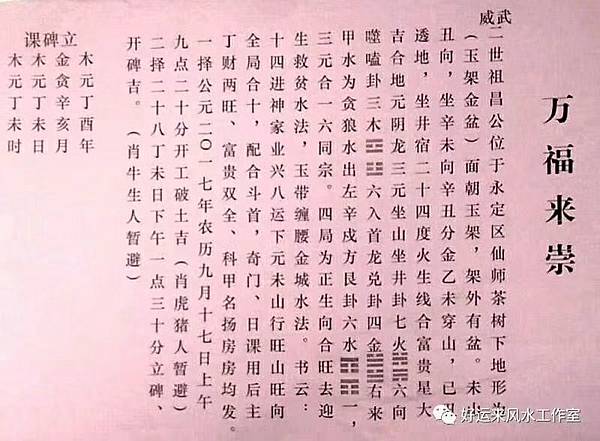 万福来崇
武威
二世祖昌公位于永定区仙师茶树下地形为
（玉架金盆）面朝玉架，架外有盆。未山
丑向，坐辛未向辛丑分金乙未穿山，己丑
透地，坐井宿二十四度火生线合富贵星大
吉合地元阴龙三元坐山坐井卦七火六向
噬嗑卦三木六入首龙兑卦四金右来
甲水为贪狼水出左辛戍方艮卦六水一，
三元合一六同宗。四局为正生向合旺去迎
生救贫水法，玉带缠腰金城水法。书云：
十四进神家业兴八运下元未山行旺山旺向
全局合十，配合斗首，奇门、日课用后主
丁财两旺、富贵双全、科甲名扬房房均发。
一择公元二0一七年农历九月十七日上午
九点二十分开工破土吉（肖虎猪人暂避）
二择二十八丁未日下午一点三十分立碑、
开碑吉。（肖牛生人暂避）
立碑课
木元丁酉年
金贪辛亥月
木元丁未日
木元丁未时
好运来风水工作室